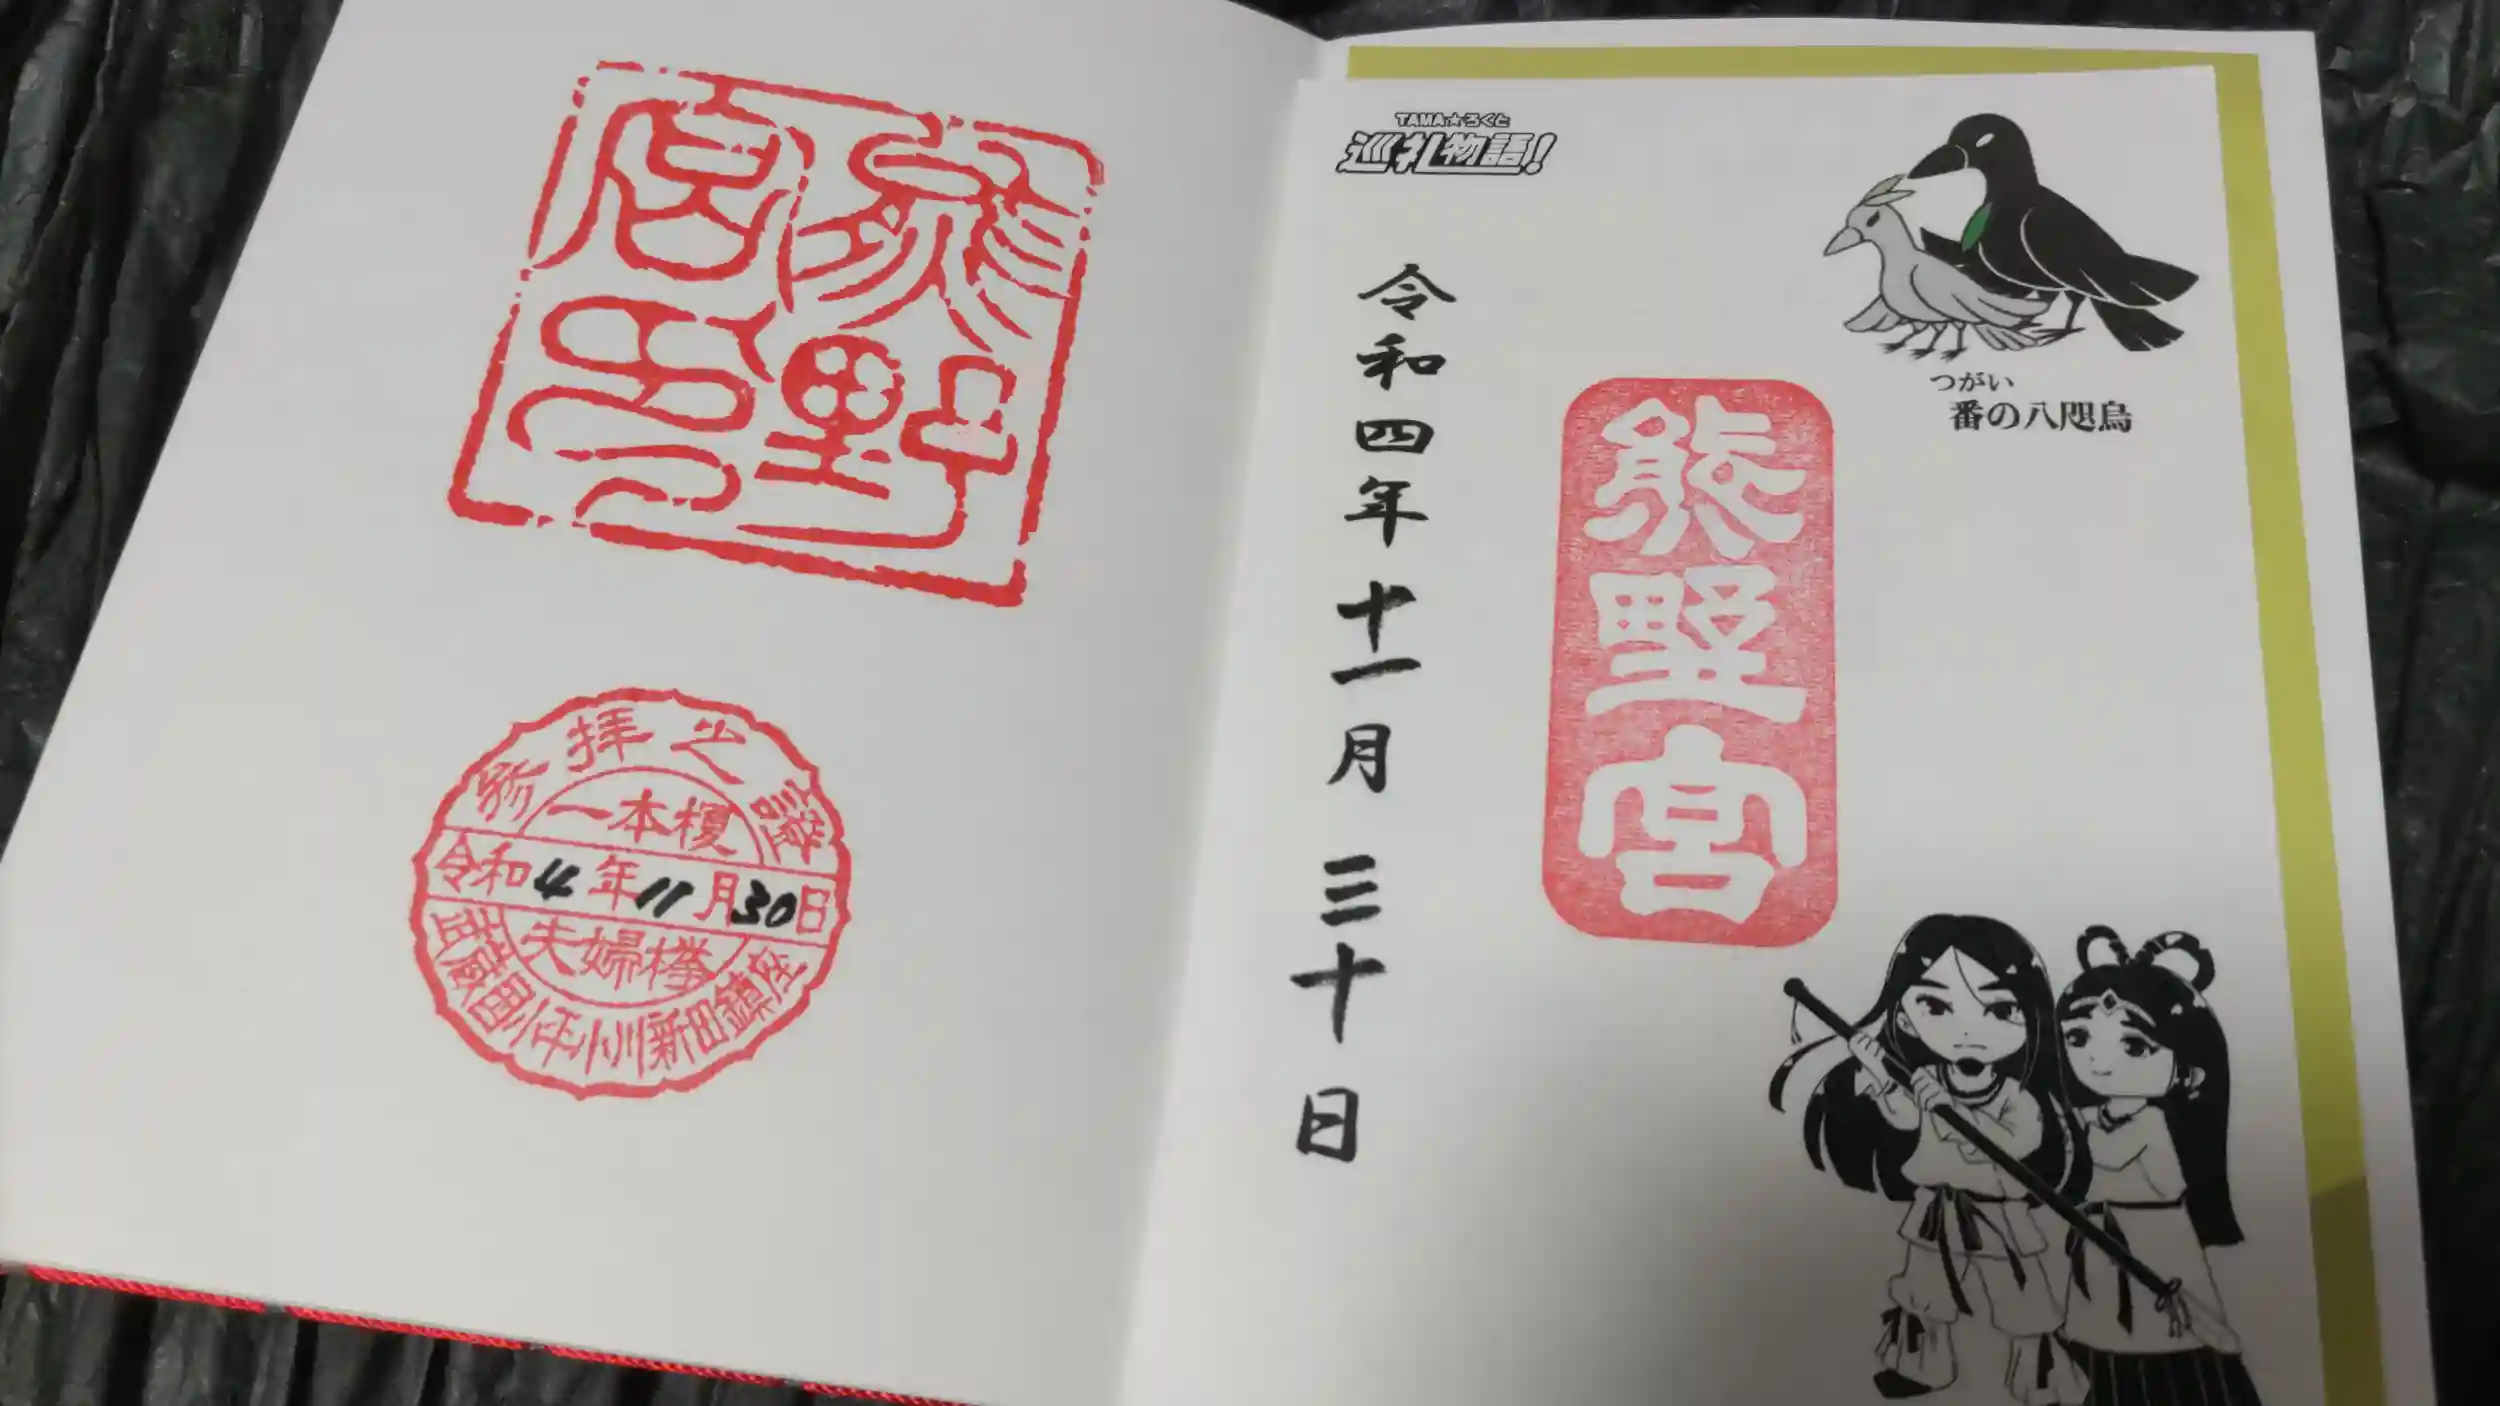 熊野
宮印
参拝之證
一本榎
令和4年11月30日
夫婦欅
武蔵国小平小川新田鎮座
TAMA☆ろくと
巡礼物語!
令和四年十一月三十日
熊野宮
つがい
番の八咫烏